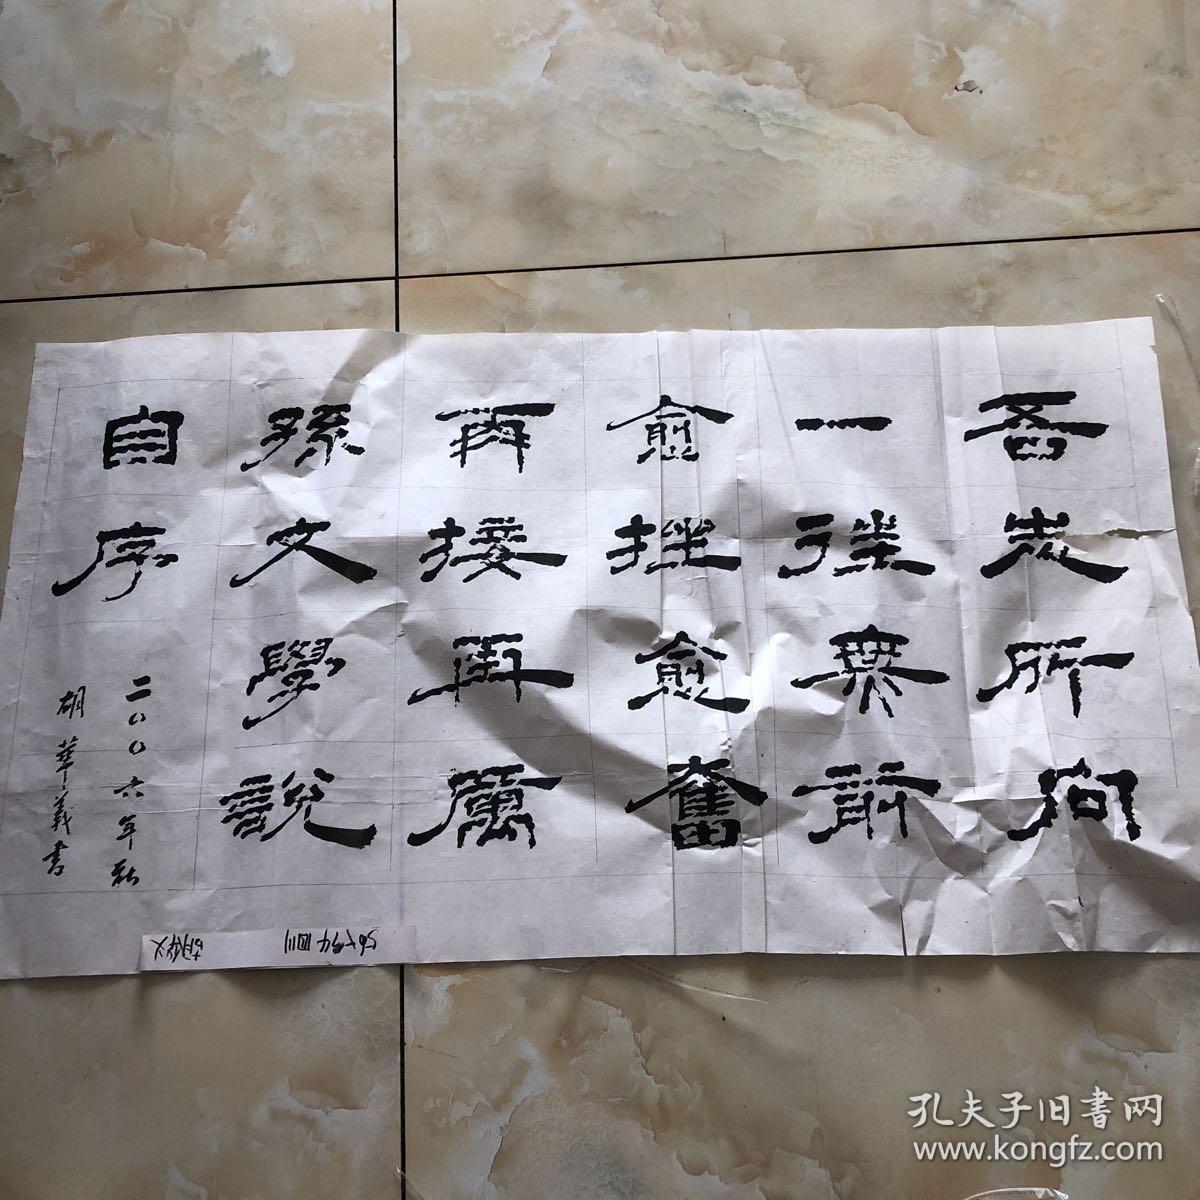 吾志所向
一往無前
愈挫愈奮
再接再厲
孫文學說
自序
二〇〇六年秋
胡華義書
胡华义
孔夫子旧書网
www.kongfz.com